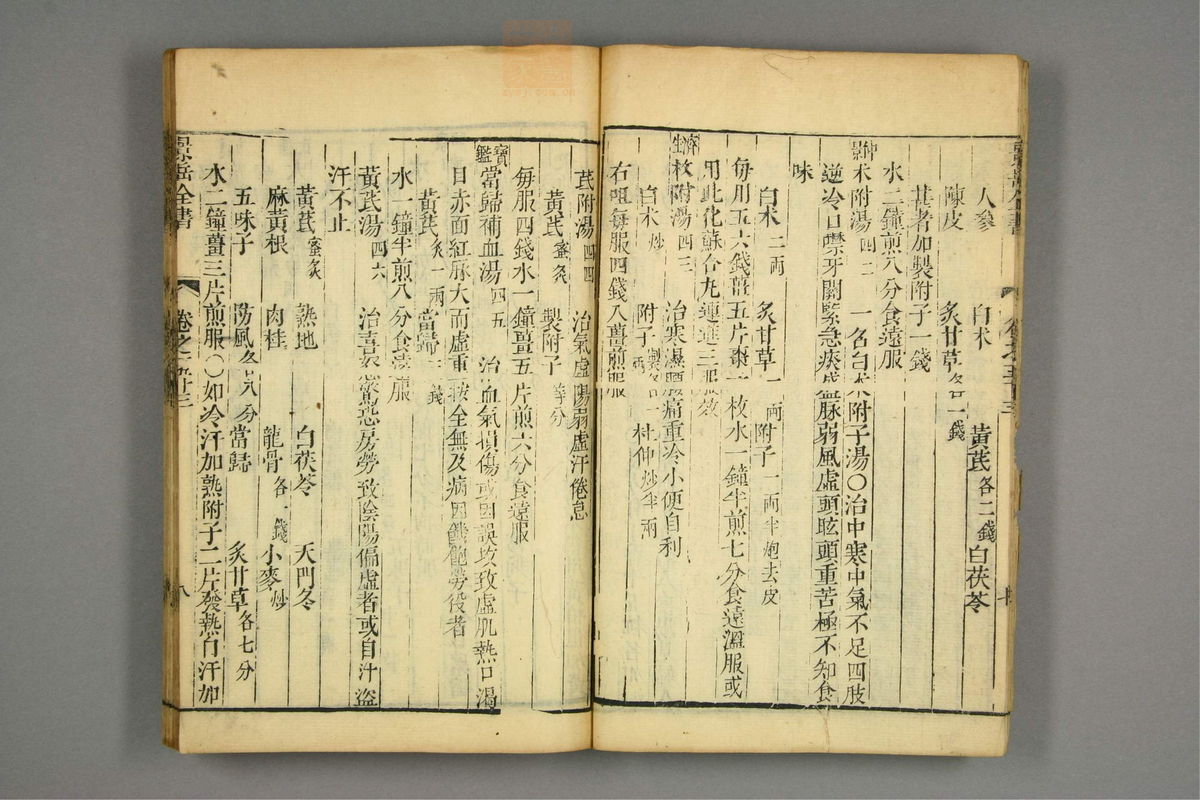 人參　白朮　黃芪各二錢　白茯苓
陳皮　炙甘草各一錢
甚者加製附子一錢
水二鐘煎八分食遠服
仲景朮附湯四二　一名白朮附子湯○治中寒中氣不足四肢
逆冷口噤牙關緊急痰盛脉弱風虛頭眩頭重苦極不知食
味
白朮二兩　炙甘草一兩　附子一兩半炮去皮
每用五六錢薑五片棗一枚水一鐘半煎七分食遠溫服或
用此化蘇合丸連進三服效
濟生朮附湯四三　治寒濕腰痛重冷小便自利
白朮炒　附子製各一兩　杜仲炒半兩
右㕮每服四錢入薑煎服
芪附湯四四　治氣虛陽弱虛汗倦怠
黃芪蜜炙　製附子等分
每服四錢水一鐘薑五片煎六分食遠服
寶鑑當歸補血湯四五　治血氣損傷或因誤攻致虛肌熱口渴
目赤面紅脉大而虛重按全無及病因饑飽勞役者
黃芪炙一兩　當歸二錢
水一鐘半煎八分食遠服
黃芪湯四六　治喜怒驚恐房勞致陰陽偏虛者或自汗盜
汗不止
黃芪蜜炙　熟地　白茯苓　天門冬
麻黃根　肉桂　龍骨各一錢　小麥炒
五味子　防風各八分　當歸　炙甘草各七分
水二鐘薑三片煎服○如冷汗加熟附子二片發熱自汗加
景岳全書　卷之五十三　八